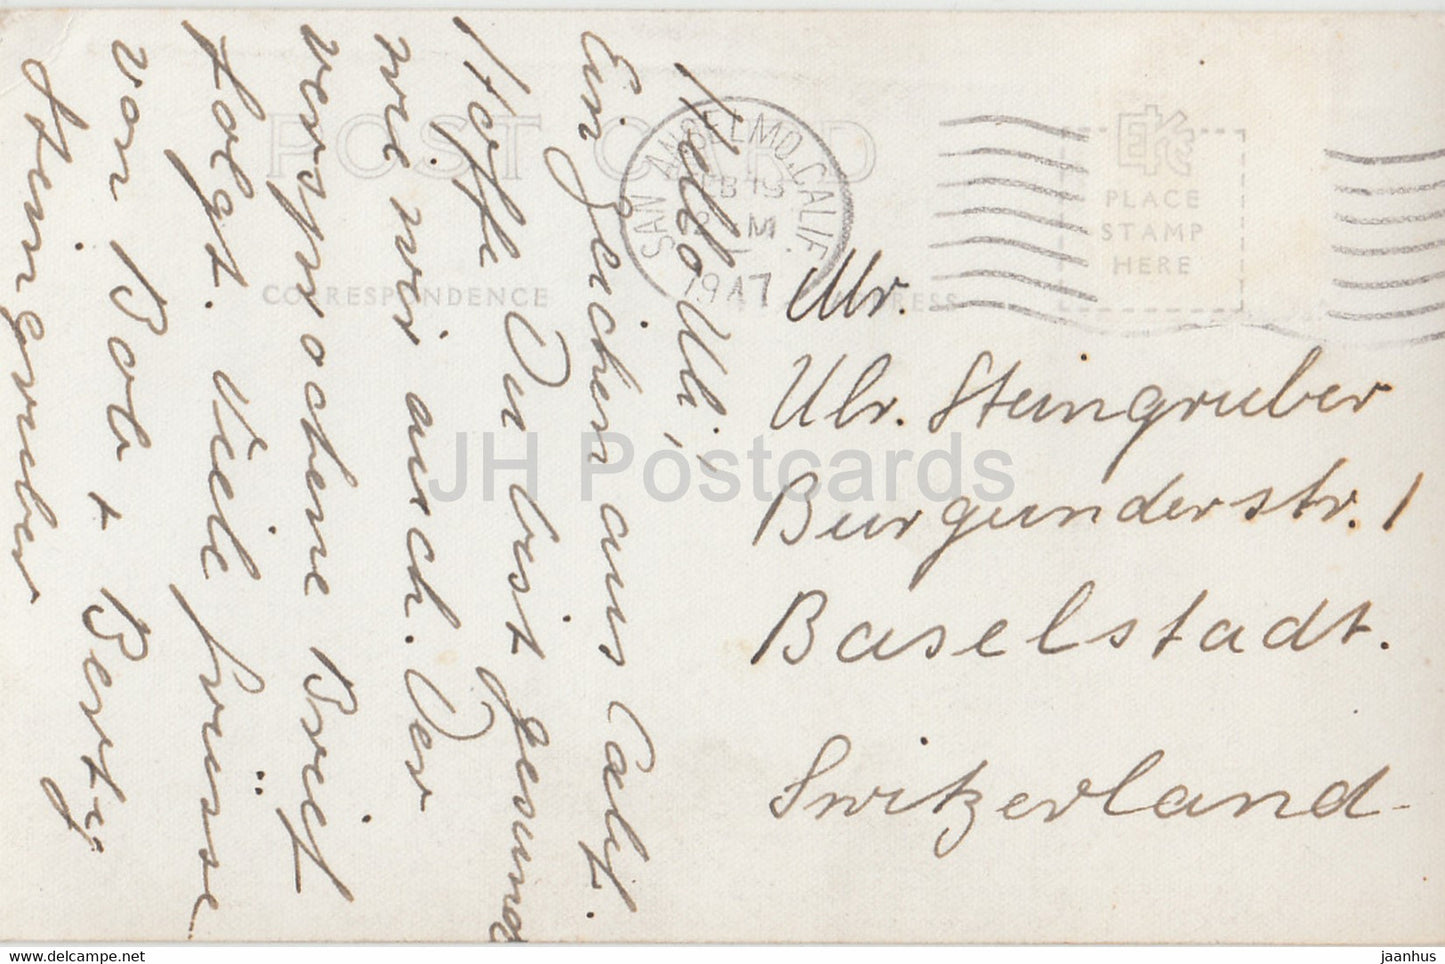 POST CARD
CORRESPONDENCE
ADDRESS
SAN ANSELMO, CALIF.
FEB 19
12 M
1947
EKC
PLACE
STAMP
HERE
Hello Uli,
Ein Zeichen aus Calif.
Hoffe Du bist gesund
wie wir auch. Der
versprochene Brief
folgt. Viele Grüsse
von Bob + Berty
Steingruber
Mr.
Ulr. Steingruber
Burgunderstr. 1
Baselstadt.
Switzerland
JH Postcards
www.delcampe.net
jaanhus